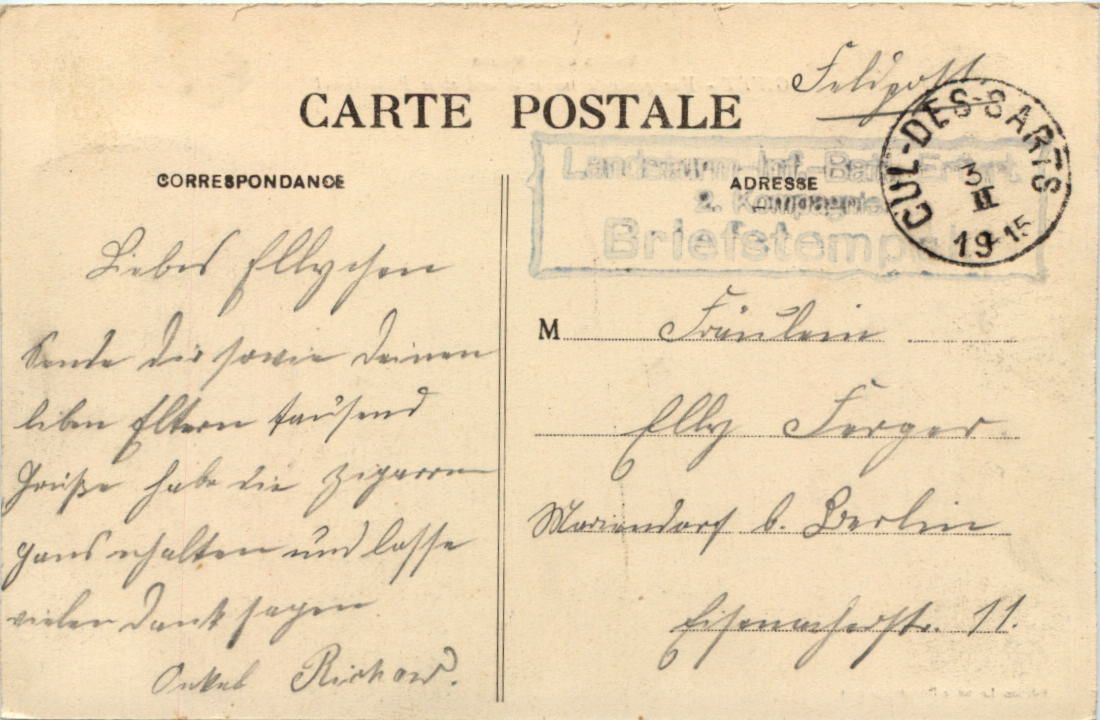 Feldpost
CARTE POSTALE
CUL-DES-SARTS
3
II
19-15
Landsturm-Inf.-Batl. Erfurt
2. Kompagnie
Briefstempel
CORRESPONDANCE
ADRESSE
Liebes Ellychen
Sende dir sowie deinen
liben Eltern tausend
Grüße habe die Zigarren
erhalten und lasse
vielen Dank sagen
Onkel Richard.
M Fräulein
Elly Ferger
Mariendorf b. Berlin
Eisenacherstr. 11.